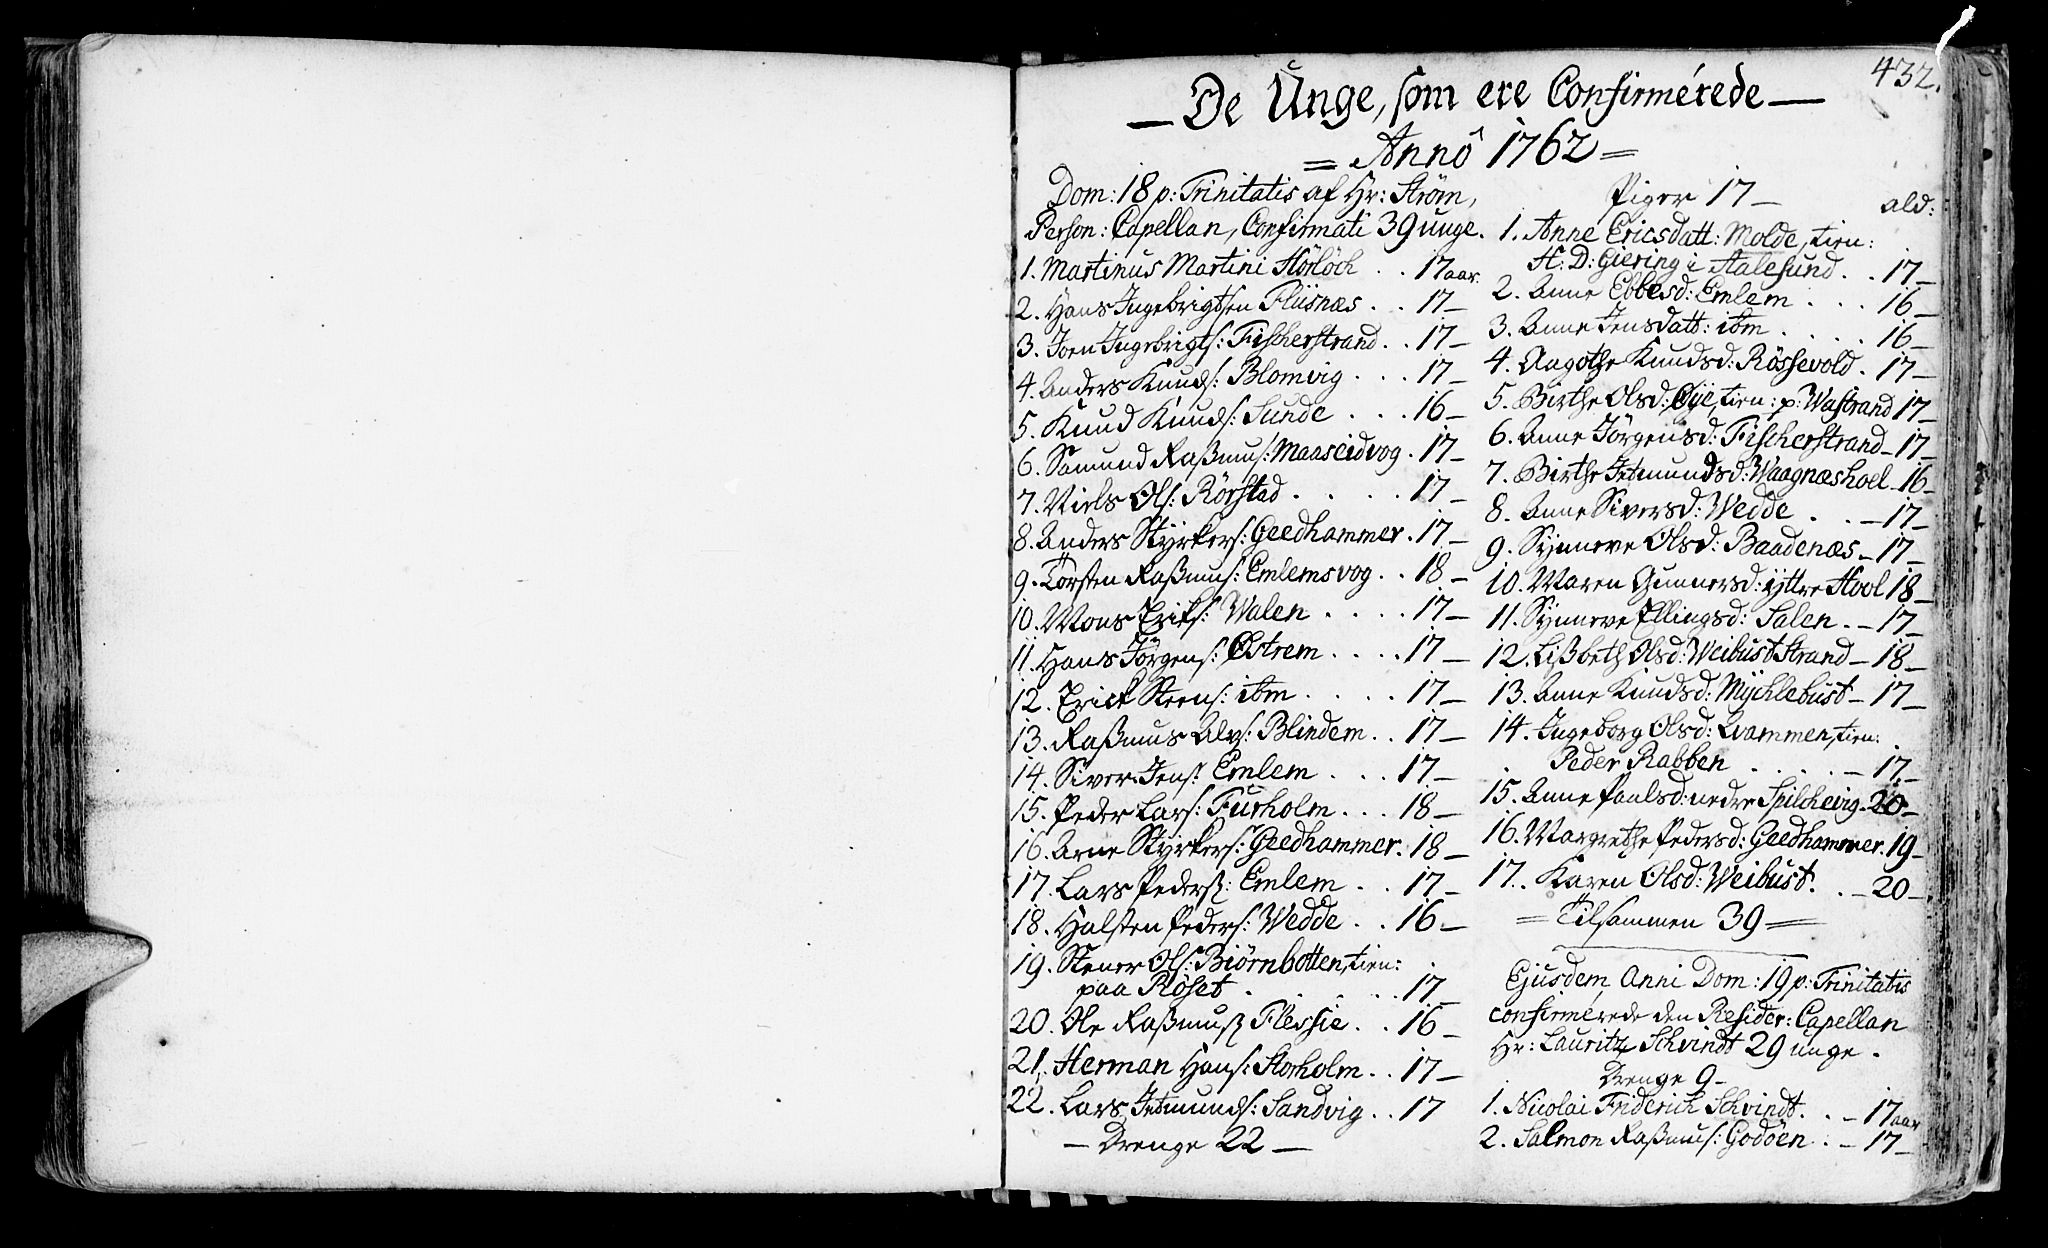 432.
— De Unge, som ere Confirmérede —
= Annô 1762 =
Dom: 18 p: Trinitatis af Hr: Strøm,
Person: Capellan, Confirmati 39 unge.
1. Martinus Martini Hörlöch . . 17 aar.
2. Hans Ingebrigtsen Fliisnæs . . 17 —
3. Joen Ingebrigts: Fischerstrand . . 17 —
4. Anders Knuds: Blomvig . . . 17 —
5. Knud Knuds: Sunde . . . 16 —
6. Samund Raßmus: Maaseidvog . 17 —
7. Niels Ols: Rörstad . . . . . 17 —
8. Anders Styrkers: Geedhammer . 17 —
9. Torsten Raßmus: Emlemsvog . . 18 —
10. Mons Eriks: Walen . . . . 17 —
11. Hans Jörgens: Østrem . . . . 17 —
12. Erick Steens: ibm . . . . . 17 —
13. Raßmus Alvs: Blindem . . 17 —
14. Siver Jens: Emlem . . . 17 —
15. Peder Lars: Furholm . . . 18 —
16. Arne Styrkers: Geedhammer . 18 —
17. Lars Peders: Emlem . . 17 —
18. Halsten Peders: Wedde . . 16 —
19. Stener Ols: Biörnbotten, tien:
paa Röset . . . . . 17 —
20. Ole Raßmus: Flessie . . 16 —
21. Herman Hans: Storholm . . 17 —
22. Lars Jetmunds: Sandvig . . 17
— Drenge 22 —
Piger 17 — ald:
1. Anne Ericsdatt: Molde, tien:
H: D: Giering i Aalesund . . 17 —
2. Anne Ebbesd: Emlem . . . 16 —
3. Anne Jensdatt: ibm . . . . 16 —
4. Aagothe Knudsd: Rössevold . 17 —
5. Birthe Olsd: Øye, tien: p: Wastrand 17 —
6. Anne Jörgensd: Fischerstrand — 17 —
7. Birthe Jetmundsd: Waagnæshoel — 16 —
8. Anne Siversd: Wedde . . — 17 —
9. Synneve Olsd: Baadenæs — 17 —
10. Maren Gunnersd: yttre Hool 18 —
11. Synneve Ellingsd: Salen . — 17 —
12. Lißbeth Olsd: Weibust Strand — 18 —
13. Anne Knudsd: Mychlebust — 17 —
14. Ingeborg Olsd: Qvammen, tien:
Peder Rabben . . . . — 17 —
15. Anne Paulsd: nedre Spilchevig . 20 —
16. Margrethe Pedersd: Geedhammer . 19 —
17. Karen Olsd: Weibust . . — 20 —
= Tilsammen 39 =
Ejusdem Anni Dom: 19 p: Trinitatis
confirmérede den Resider: Capellan
Hr: Lauritz Schvindt 29 unge .
Drenge 9 —
1. Nicolai Friderich Schvindt . . — 17 aar
2. Salmon Raßmus: Godöen . — 17 —